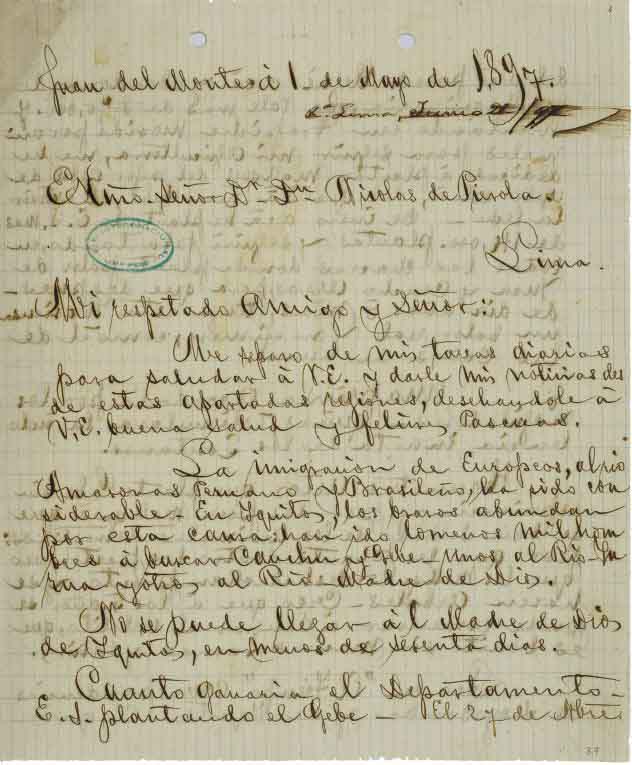 Juan del Monte, á 1- de Mayo de 1,897.
Lima, Junio 21/97
Exmo. Señor Dr. Dn Nicolas de Pierola.
Lima.
Mi respetado Amigo y Señor:
Me separo de mis tareas diarias
para saludar à V.E. y darle mis noticias des
de estas apartadas rejiones, deseandole à
V.E. buena salud y felices Pascuas.
La imigracion de Europeos, al rio
Amazonas Peruano y Brasileño, ha sido con
siderable - En Yquitos, los brazos abundan
por esta causa: han ido lomenos mil hom
bres à buscar Cauchu y Gebe - unos al Rio-Ju
rua y otros al Rio-Madre de Dios.
No se puede llegar à l Madre de Dios
de Yquitos, en menos de sesenta dias.
Cuanto ganaria el Departamento -
E. S. plantando el Gebe - El 27 de Abri
37